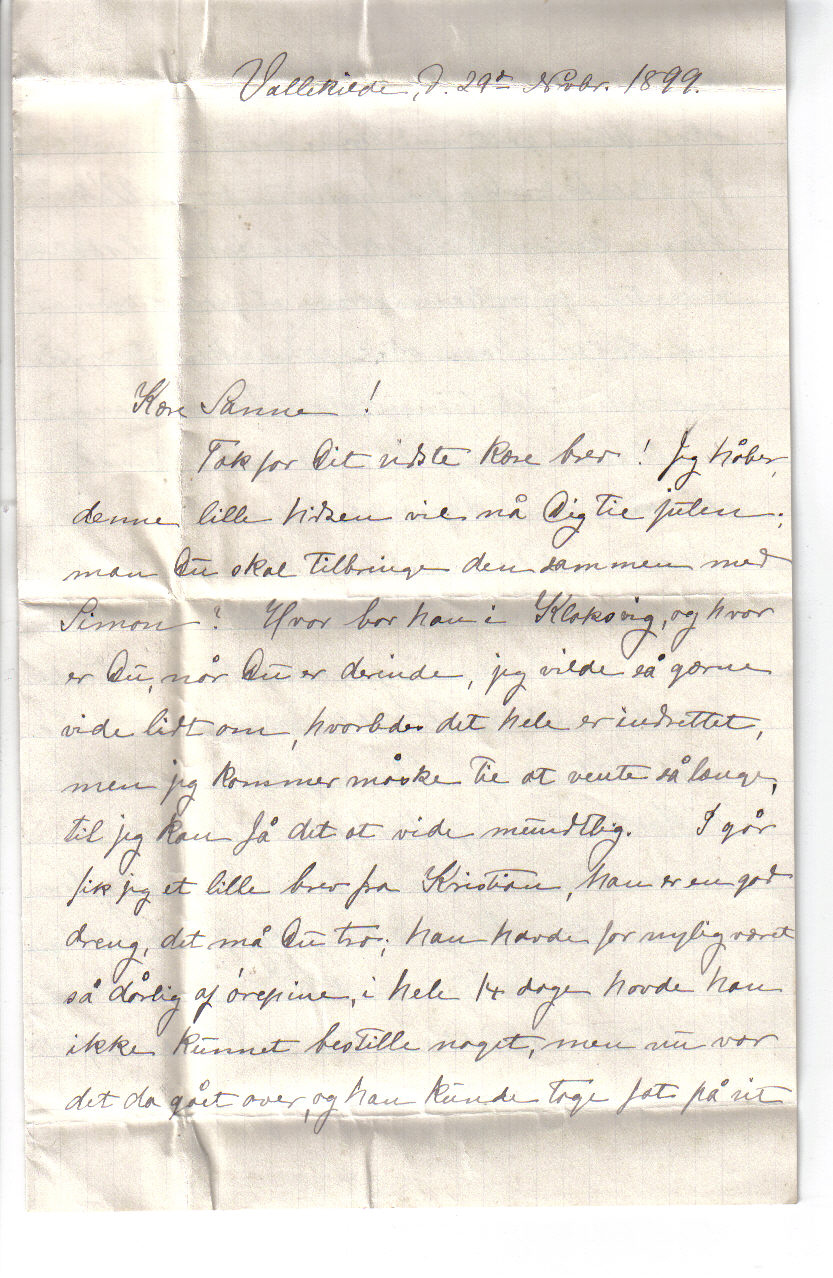 Vallekilde, d. 29de Novbr. 1899.
Kære Sanne !
Tak for Dit sidste kære brev ! Jeg håber,
denne lille hilsen vil nå Dig til julen ;
mon Du skal tilbringe den sammen med
Simon ? Hvor bor han i Klaksvig, og hvor
er Du, når Du er derinde, jeg vilde så gærne
vide lidt om, hvorledes det hele er indrettet,
men jeg kommer måske til at vente så længe,
til jeg kan få det at vide mundtlig. I går
fik jeg et lille brev fra Kristian, han er en god
dreng, det må Du tro; han havde for nylig været
så dårlig af ørepine, i hele 14 dage havde han
ikke kunnet bestille noget, men nu var
det da gået over, og han kunde tage fat på sit